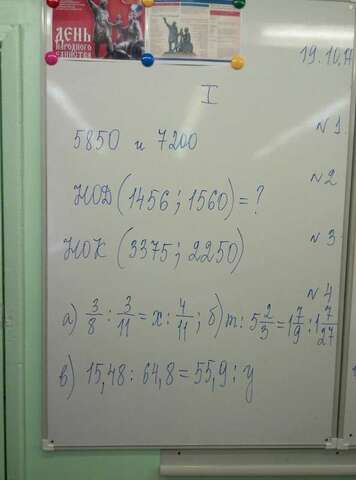 ДЕНЬ
НАРОДНОГО
ЕДИНСТВА
19.10.
I
5850 и 7200 №1
НОД (1456; 1560) = ? №2
НОК (3375; 2250) №3
№4
а) 3/8 : 3/11 = x : 4/11; б) m : 5 2/3 = 1 7/9 : 1 7/27
в) 15,48 : 64,8 = 55,9 : y